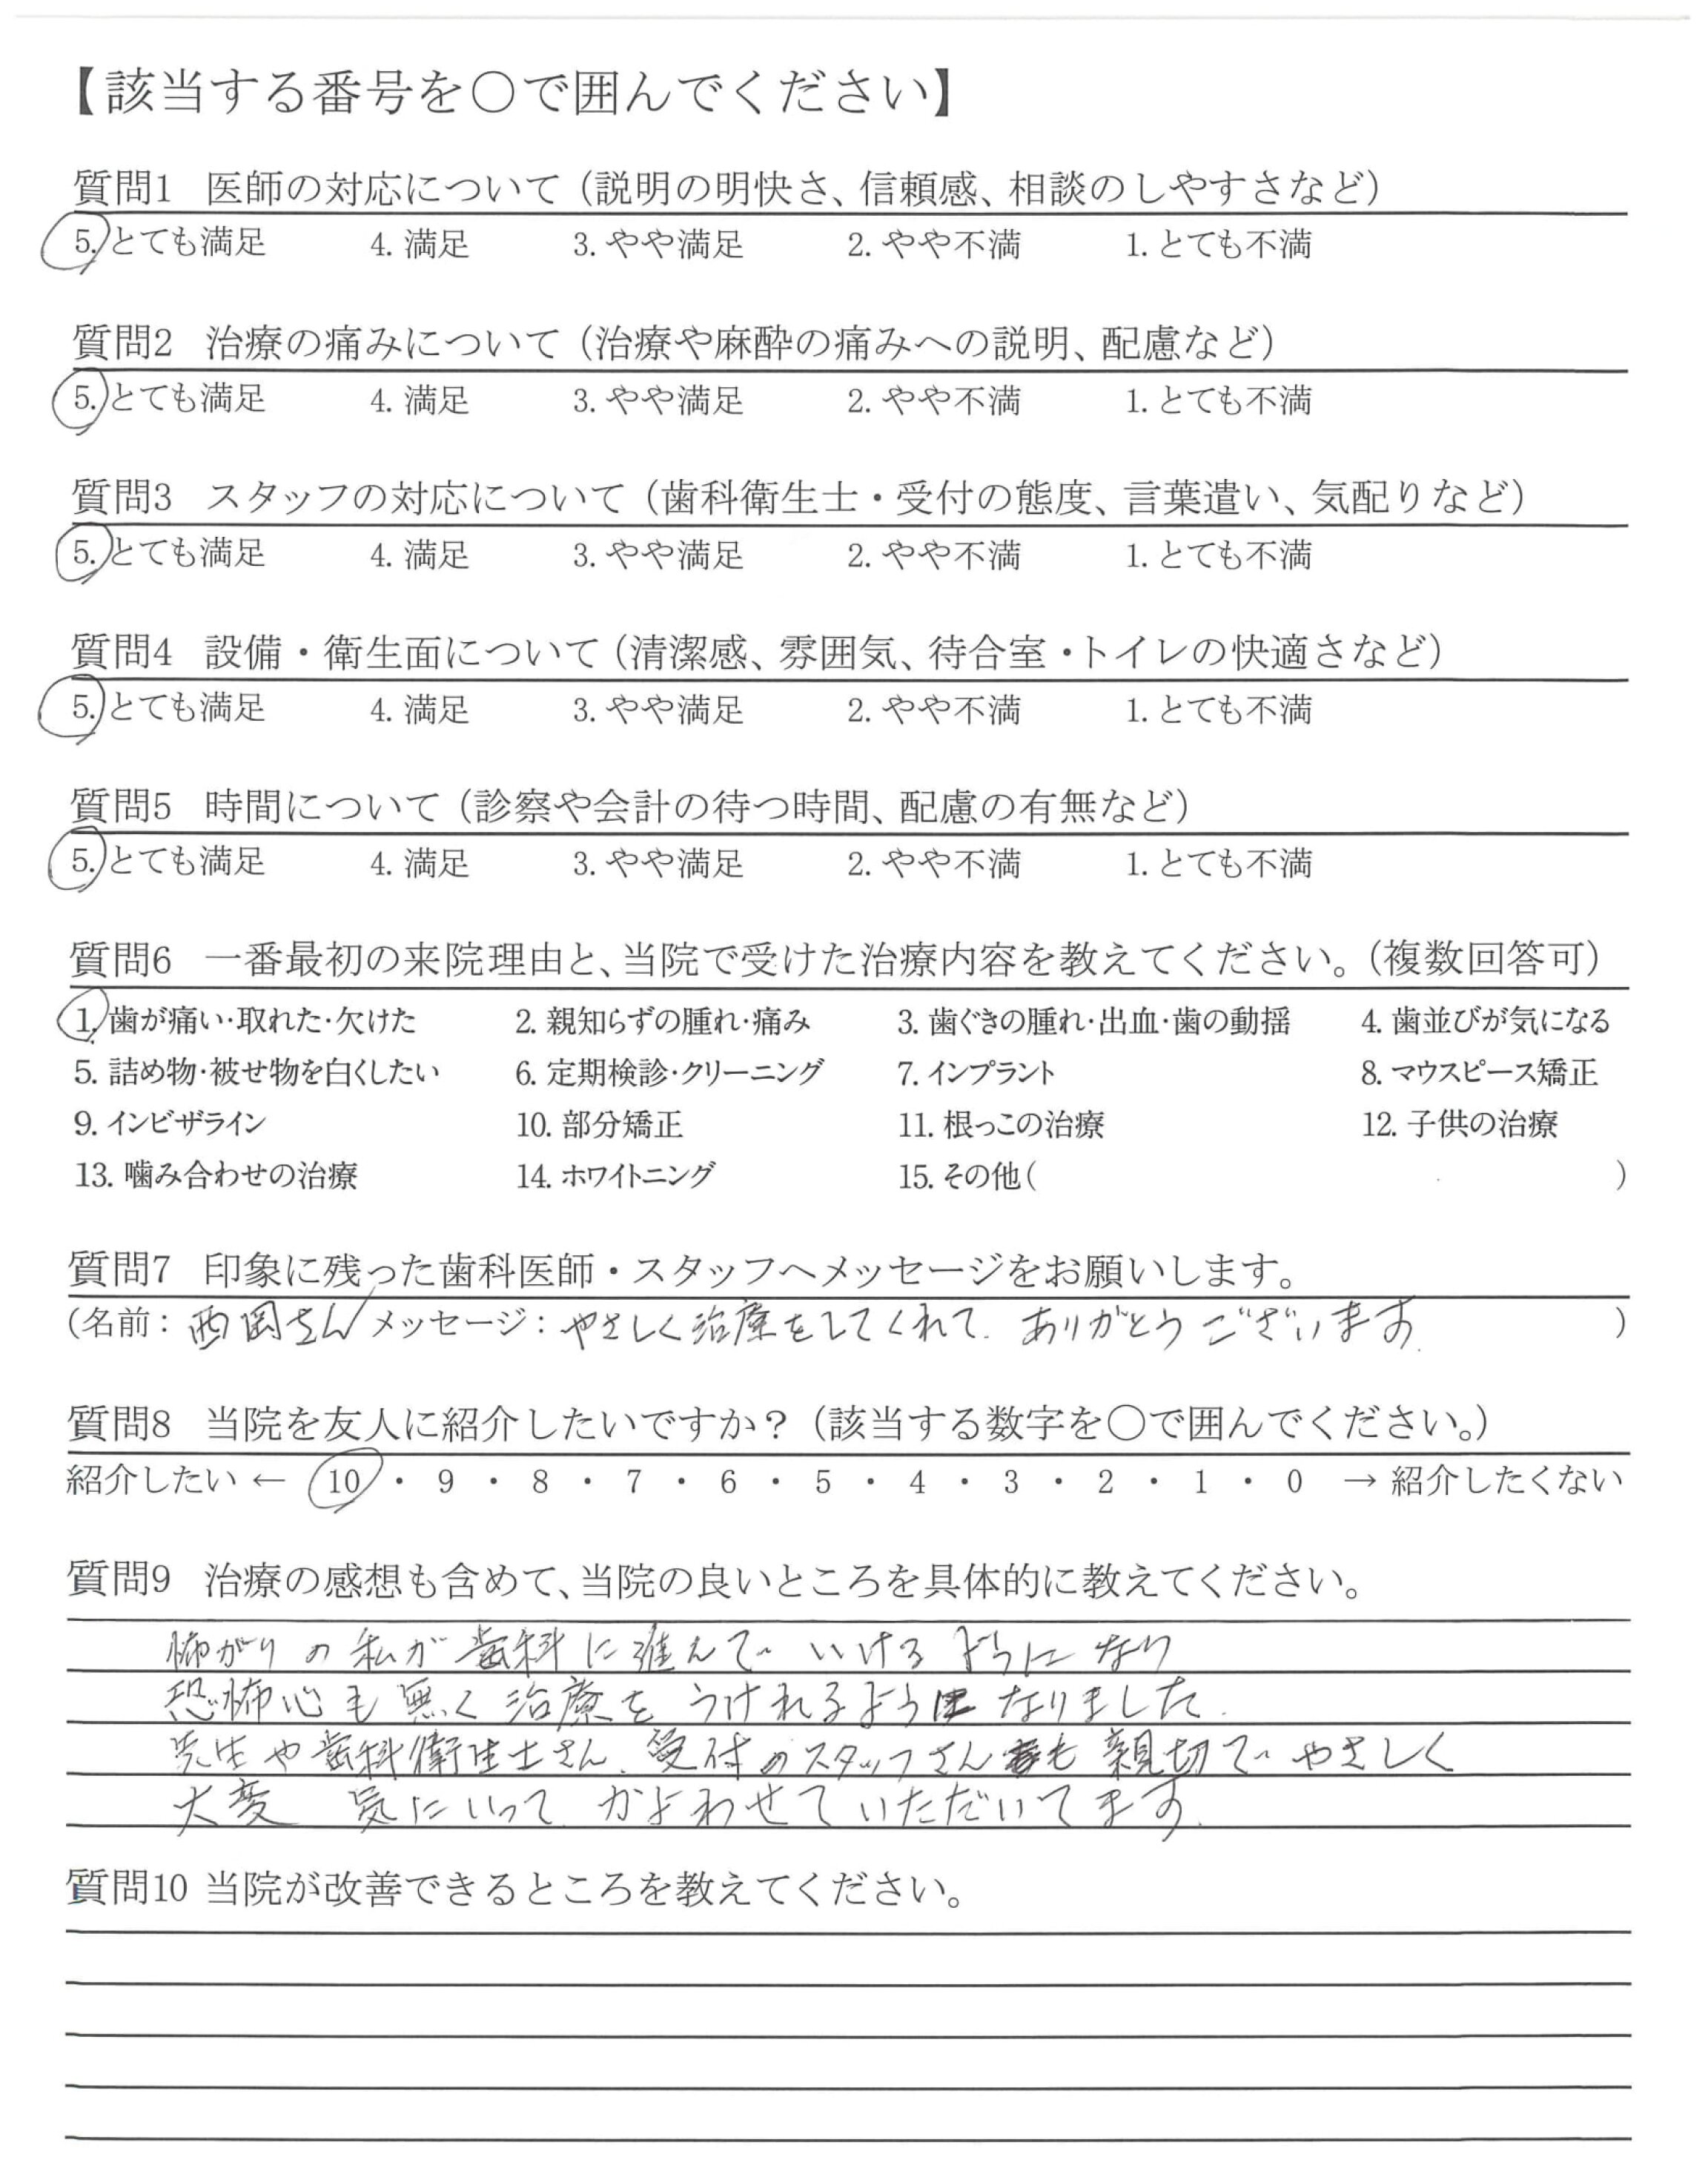 【該当する番号を○で囲んでください】
質問1 医師の対応について（説明の明快さ、信頼感、相談のしやすさなど）
5. とても満足 4. 満足 3. やや満足 2. やや不満 1. とても不満
質問2 治療の痛みについて（治療や麻酔の痛みへの説明、配慮など）
5. とても満足 4. 満足 3. やや満足 2. やや不満 1. とても不満
質問3 スタッフの対応について（歯科衛生士・受付の態度、言葉遣い、気配りなど）
5. とても満足 4. 満足 3. やや満足 2. やや不満 1. とても不満
質問4 設備・衛生面について（清潔感、雰囲気、待合室・トイレの快適さなど）
5. とても満足 4. 満足 3. やや満足 2. やや不満 1. とても不満
質問5 時間について（診察や会計の待つ時間、配慮の有無など）
5. とても満足 4. 満足 3. やや満足 2. やや不満 1. とても不満
質問6 一番最初の来院理由と、当院で受けた治療内容を教えてください。（複数回答可）
1. 歯が痛い・取れた・欠けた 2. 親知らずの腫れ・痛み 3. 歯ぐきの腫れ・出血・歯の動揺 4. 歯並びが気になる
5. 詰め物・被せ物を白くしたい 6. 定期検診・クリーニング 7. インプラント 8. マウスピース矯正
9. インビザライン 10. 部分矯正 11. 根っこの治療 12. 子供の治療
13. 噛み合わせの治療 14. ホワイトニング 15. その他（ ）
質問7 印象に残った歯科医師・スタッフへメッセージをお願いします。
（名前：西岡さん メッセージ：やさしく治療をしてくれて、ありがとうございます ）
質問8 当院を友人に紹介したいですか？（該当する数字を○で囲んでください。）
紹介したい ← 10 ・ 9 ・ 8 ・ 7 ・ 6 ・ 5 ・ 4 ・ 3 ・ 2 ・ 1 ・ 0 → 紹介したくない
質問9 治療の感想も含めて、当院の良いところを具体的に教えてください。
怖がりの私が歯科に進んでいけるようになり
恐怖心も無く治療をうけれるようになりました。
先生や歯科衛生士さん、受付のスタッフさんも親切でやさしく
大変 気にいって、かよわせていただいてます。
質問10 当院が改善できるところを教えてください。